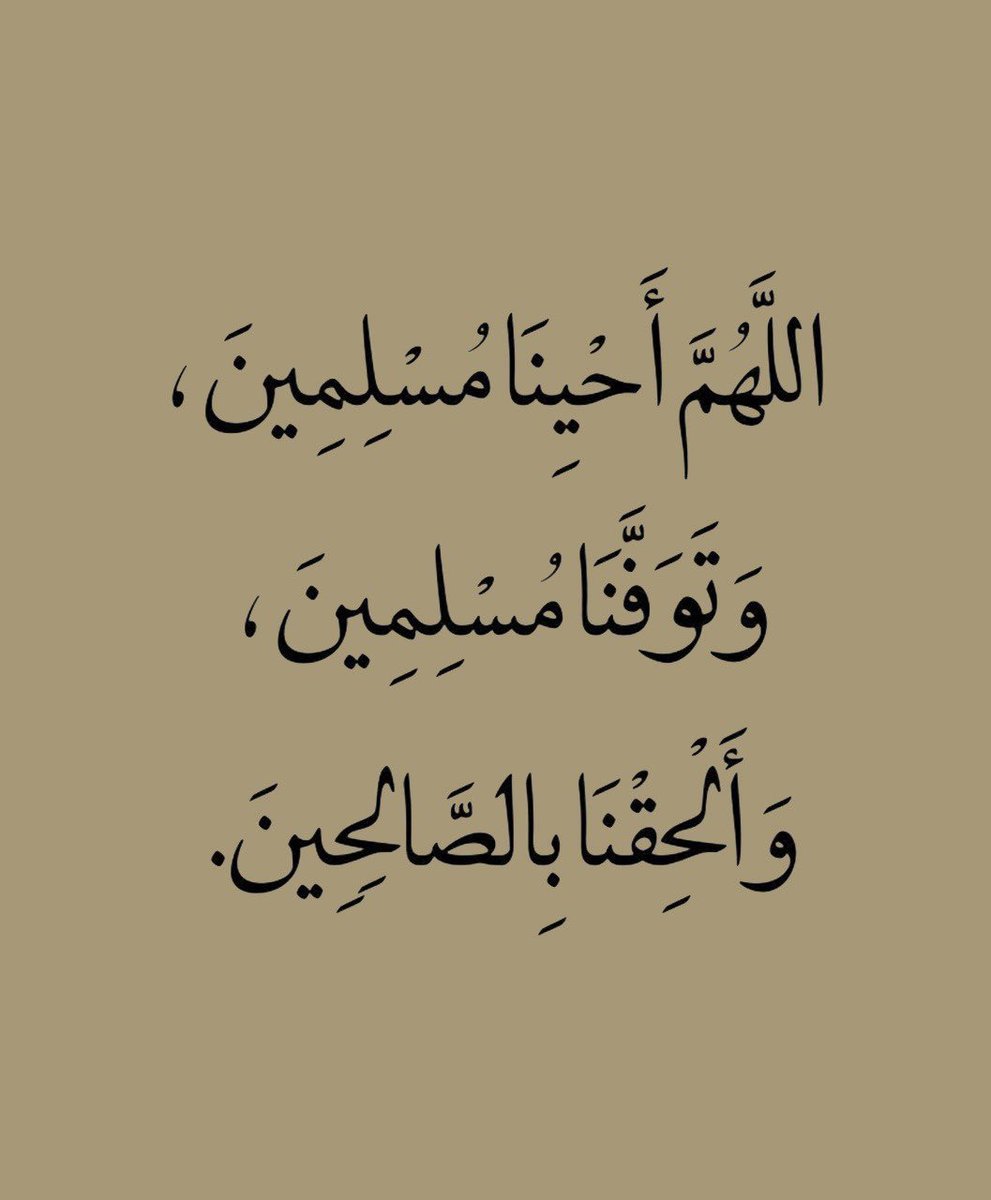 اللَّهُمَّ أَحْيِنَا مُسْلِمِينَ ،
وَتَوَفَّنَا مُسْلِمِينَ ،
وَأَلْحِقْنَا بِالصَّالِحِينَ.